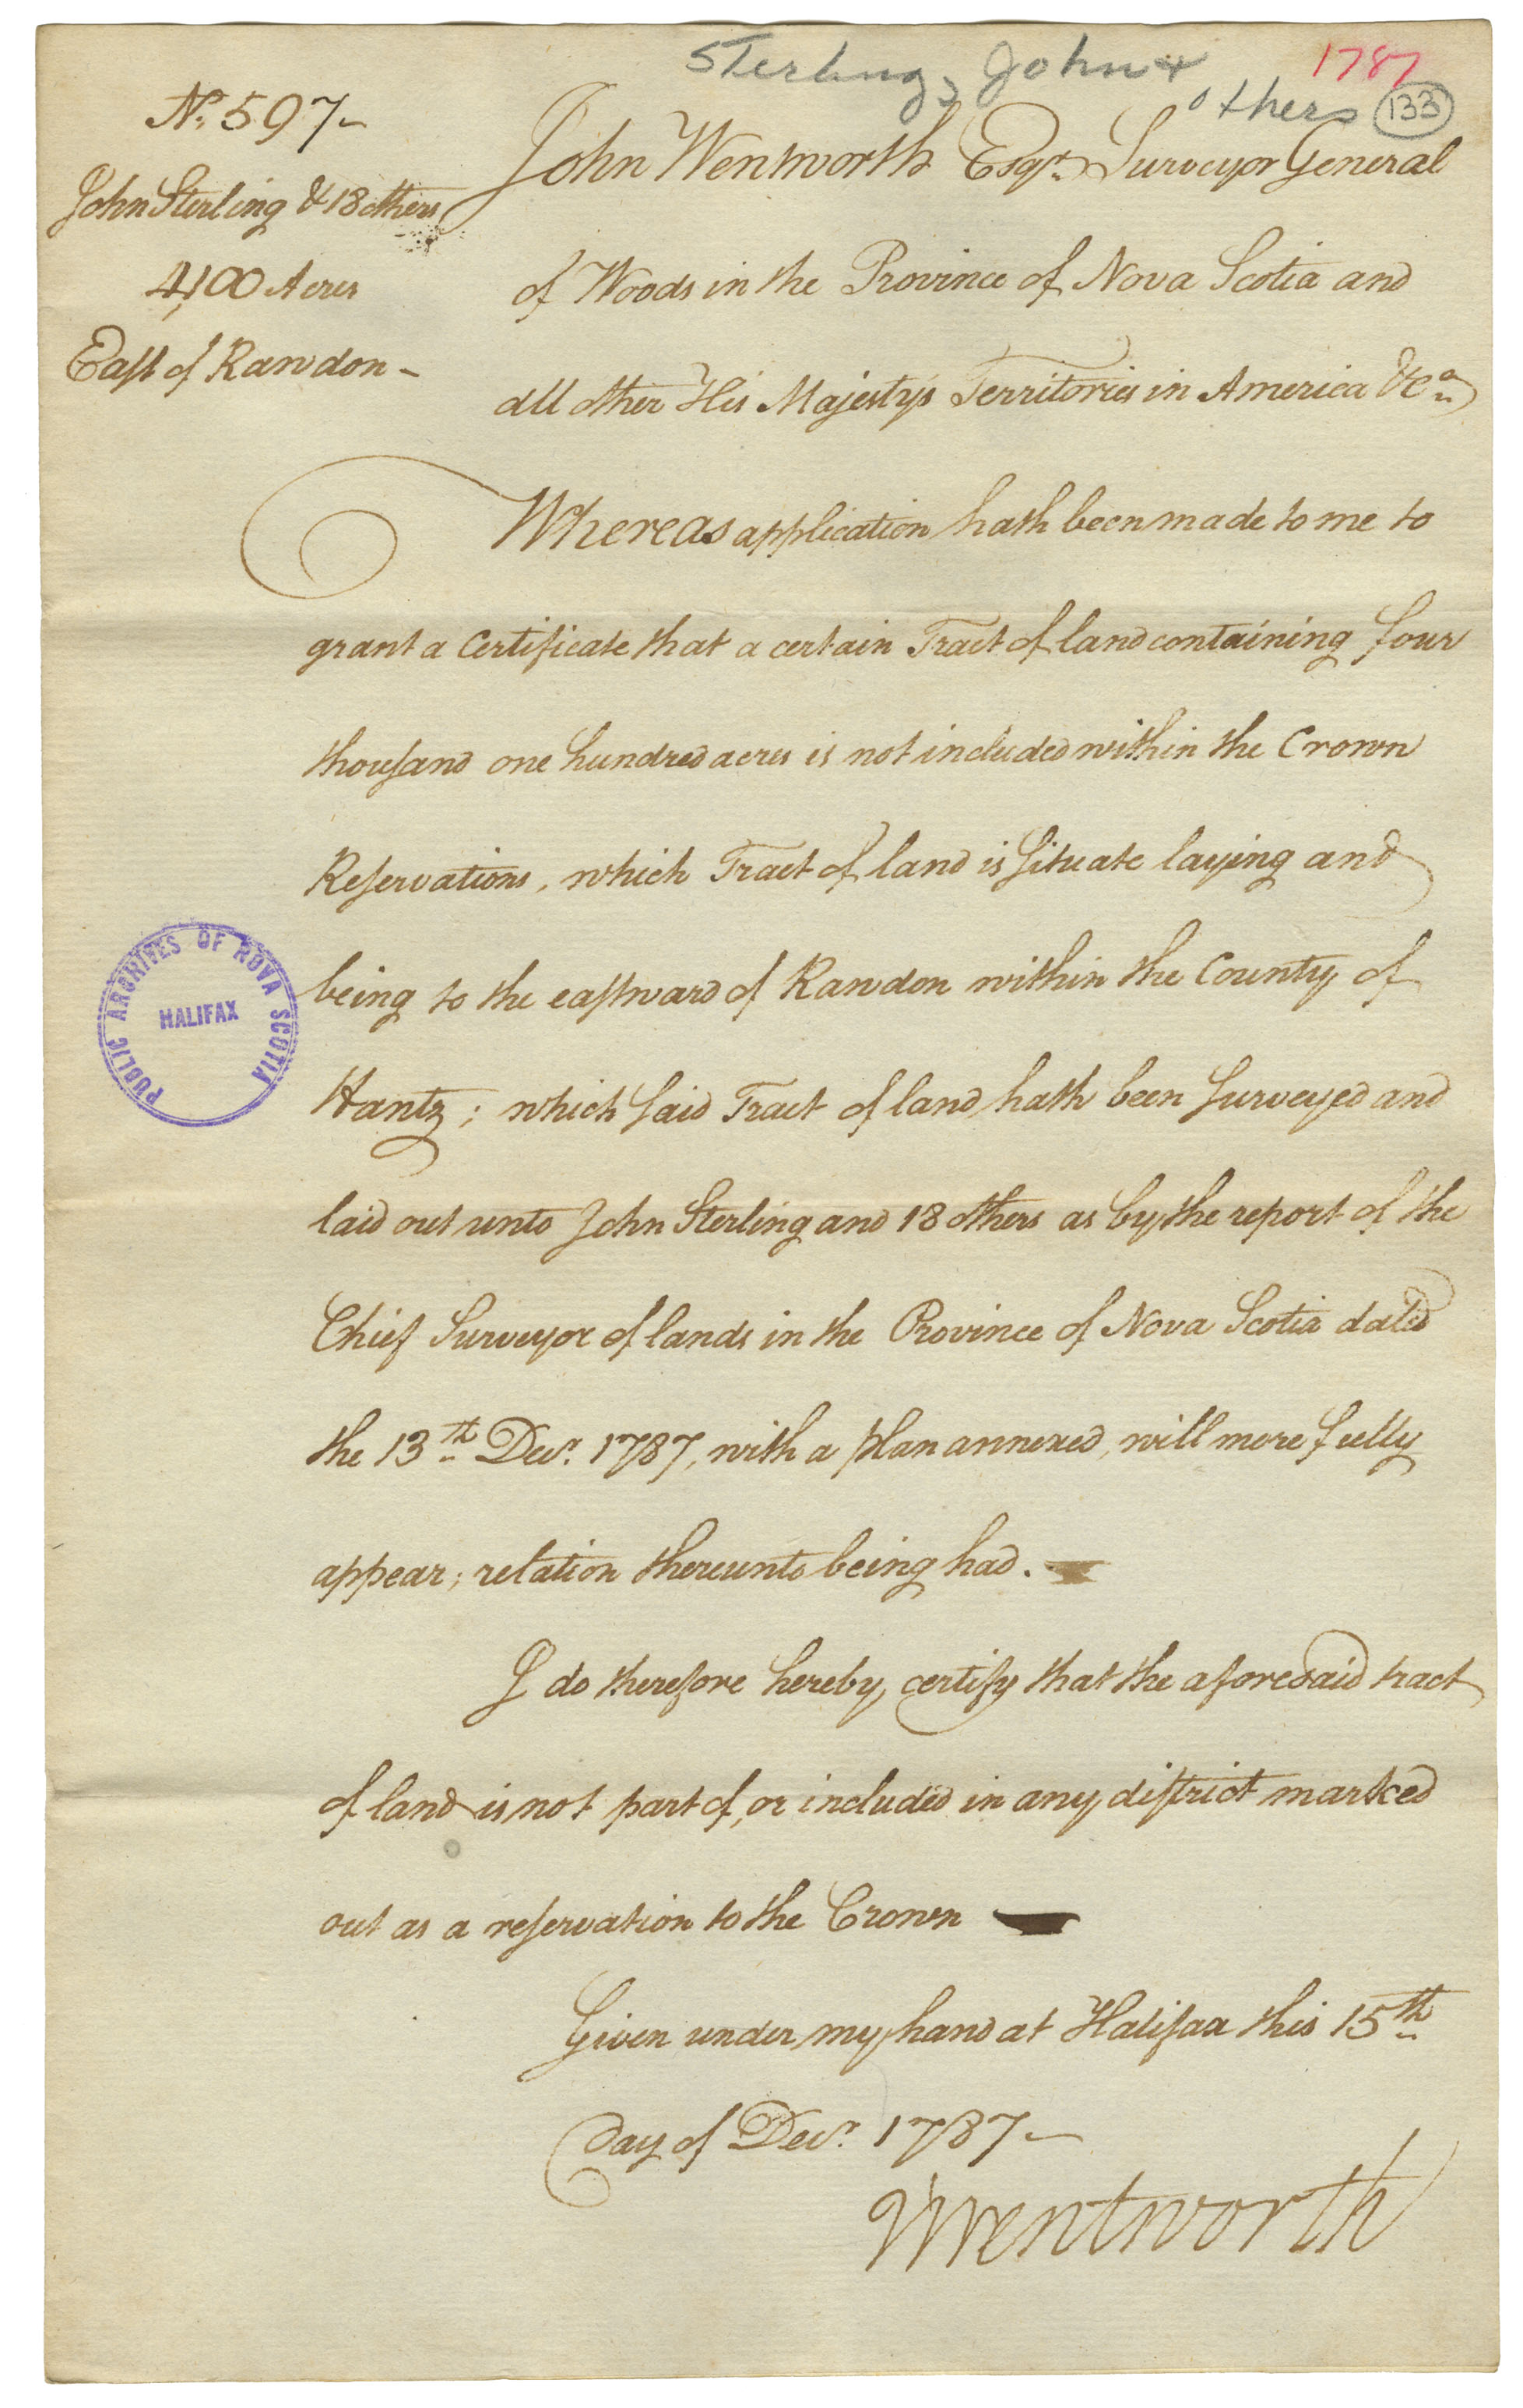 Sterling, John &
others
1787
133
No. 597
John Sterling & 18 others
4,100 Acres
East of Rawdon
John Wentworth Esqr. Surveyor General
of Woods in the Province of Nova Scotia and
all other His Majesty's Territories in America &Ca.
Whereas application hath been made to me to
grant a Certificate that a certain Tract of land containing four
thousand one hundred acres is not included within the Crown
Reservations, which Tract of land is situate laying and
being to the eastward of Rawdon within the County of
Hantz; which said Tract of land hath been surveyed and
laid out unto John Sterling and 18 others as by the report of the
Chief Surveyor of lands in the Province of Nova Scotia dated
the 13th Decr. 1787, with a plan annexed, will more fully
appear; relation thereunto being had.
I do therefore hereby certify that the aforesaid tract
of land is not part of, or included in any district marked
out as a reservation to the Crown
Given under my hand at Halifax this 15th
day of Decr. 1787
Wentworth
PUBLIC ARCHIVES OF NOVA SCOTIA
HALIFAX